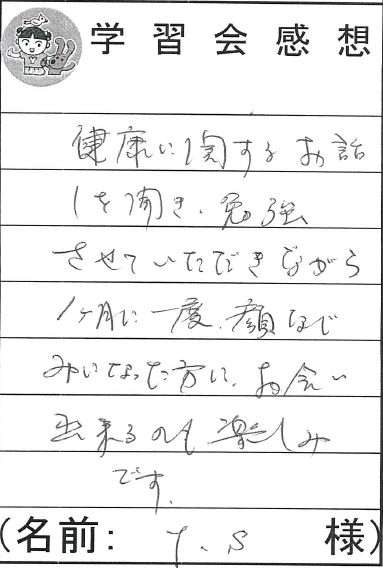 学習会感想
健康に関するお話
しを聞き、勉強
させていただきながら
1ヶ月に一度、顔なじ
みになった方に、お会い
出来るのも楽しみ
です。
(名前: T.S 様)